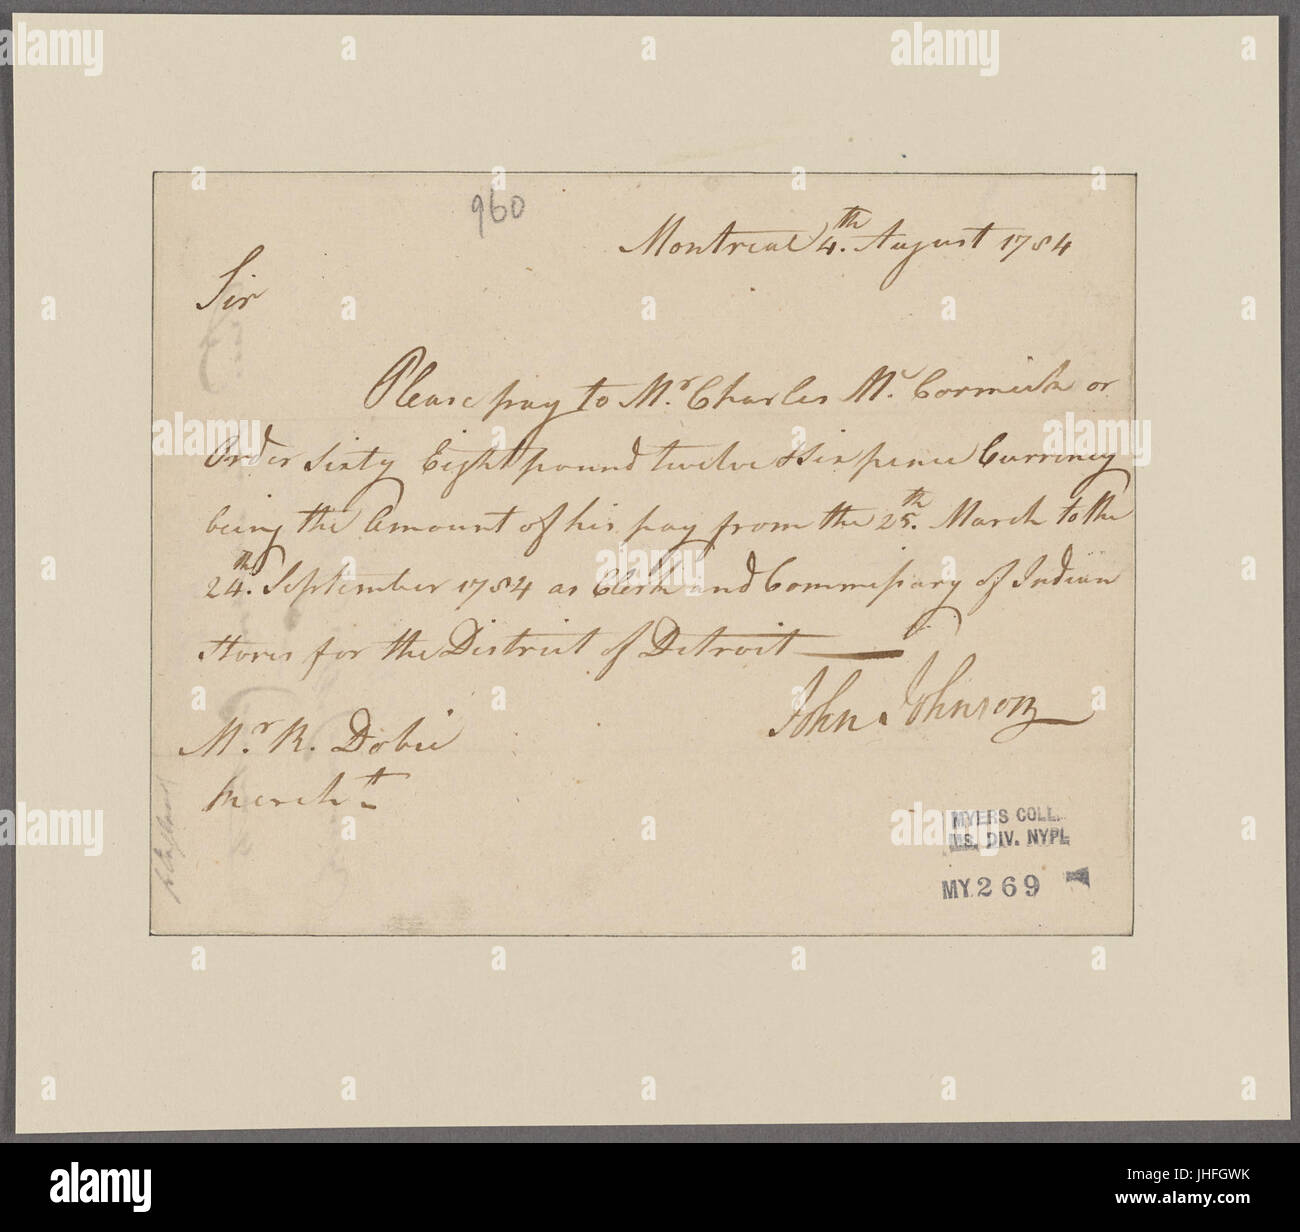 960
Montreal 4.th August 1784
Sir
Please pay to Mr. Charles Mc. Cormick or
Order Sixty Eight pound twelve & Six pence Currency
being the Amount of his pay from the 25.th March to the
24.th September 1784 as Clerk and Commissary of Indian
Stores for the District of Detroit
John Johnson
Mr. R. Dobie
Merch.tt
MYERS COLL.
MS. DIV. NYPL
MY 269
alamy
alamy
alamy
alamy
a alamy
Image ID: JHFGWK
www.alamy.com